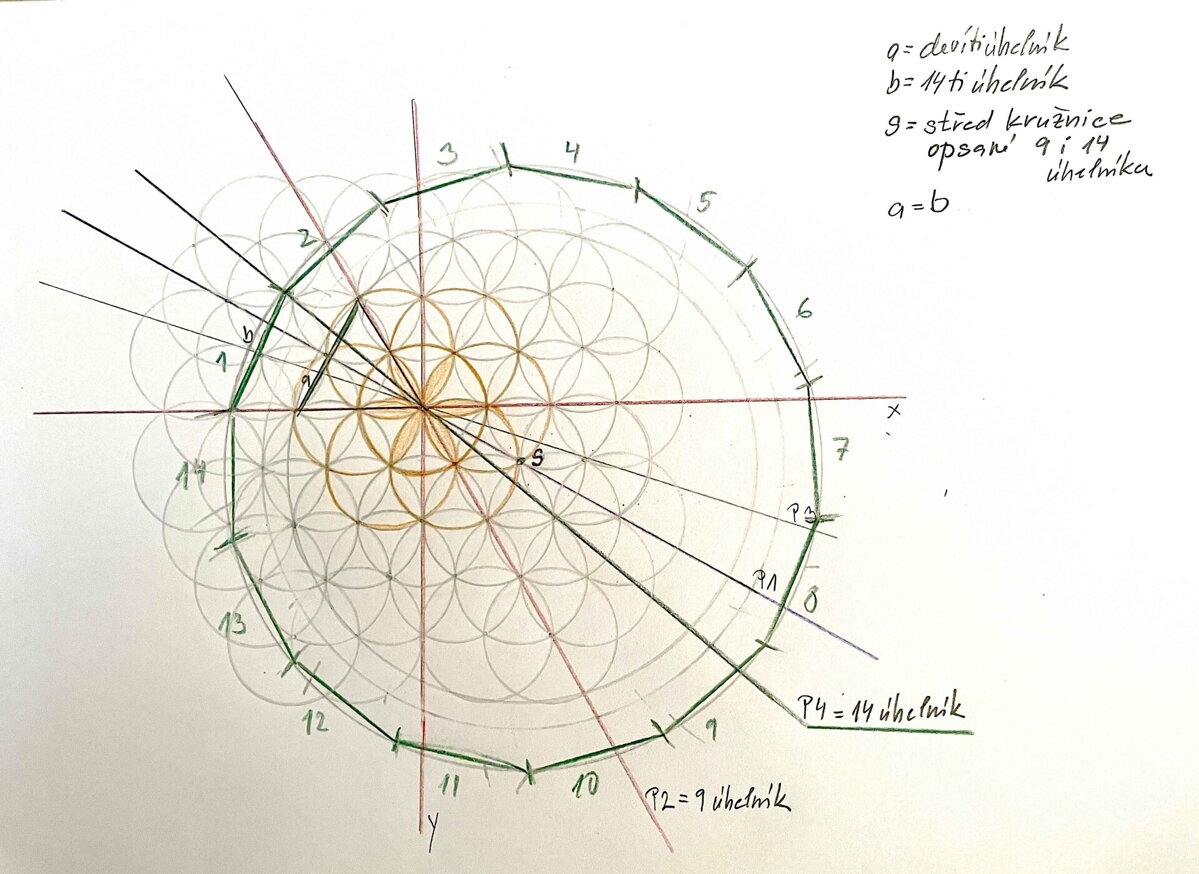 a = devítiúhelník
b = 14ti úhelník
S = střed kružnice
opsané 9 i 14
úhelníka
a = b
3
4
2
5
6
b
1
a
x
S
7
14
P3
P1
8
13
P4 = 14 úhelník
12
9
11
10
P2 = 9 úhelník
y